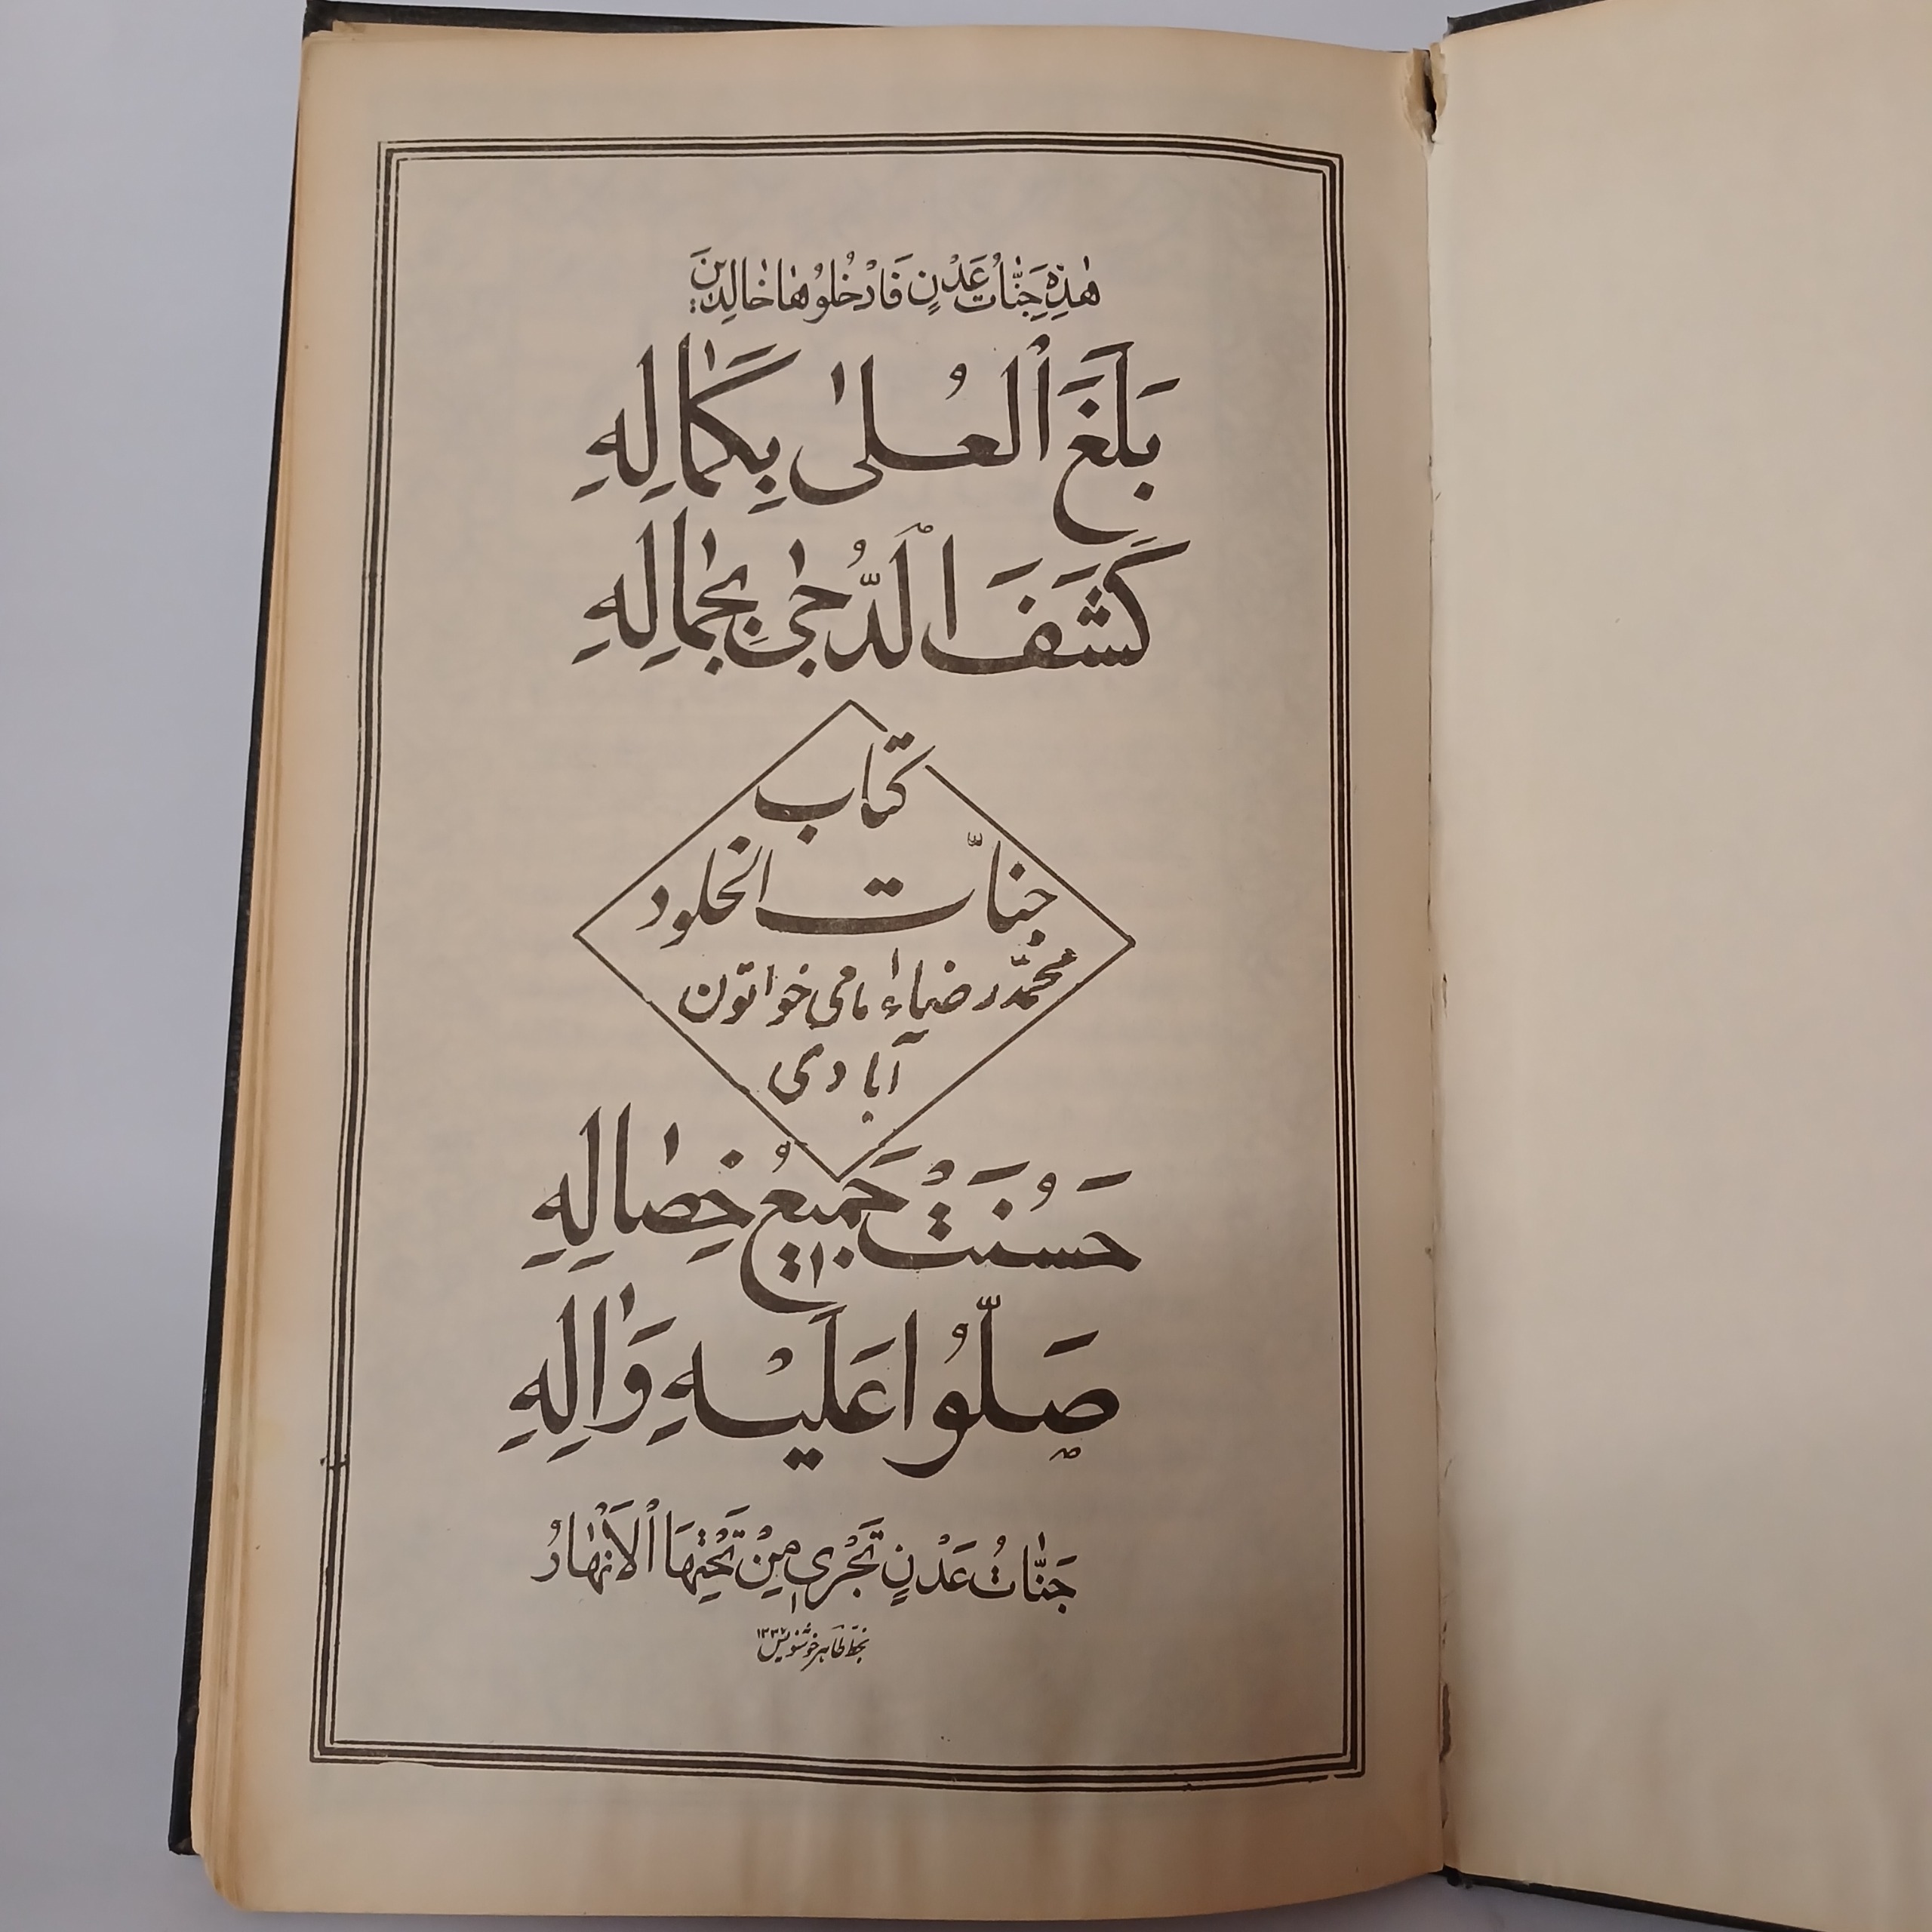 هٰذِهِ جَنّٰاتُ عَدْنٍ فَادْخُلُوهٰا خٰالِدِينَ
بَلَغَ ٱلْعُلىٰ بِكَمٰالِهِ
كَشَفَ ٱلدُّجىٰ بِجَمٰالِهِ
كتاب
جنّات الخلود
محمّد رضاء امامی خواتون
آبادی
حَسُنَتْ جَمِيعُ خِصٰالِهِ
صَلُّوا عَلَيْهِ وَاٰلِهِ
جَنّٰاتُ عَدْنٍ تَجْرِي مِنْ تَحْتِهَا ٱلْاَنْهٰارُ
بخط طاهر خوشنویس